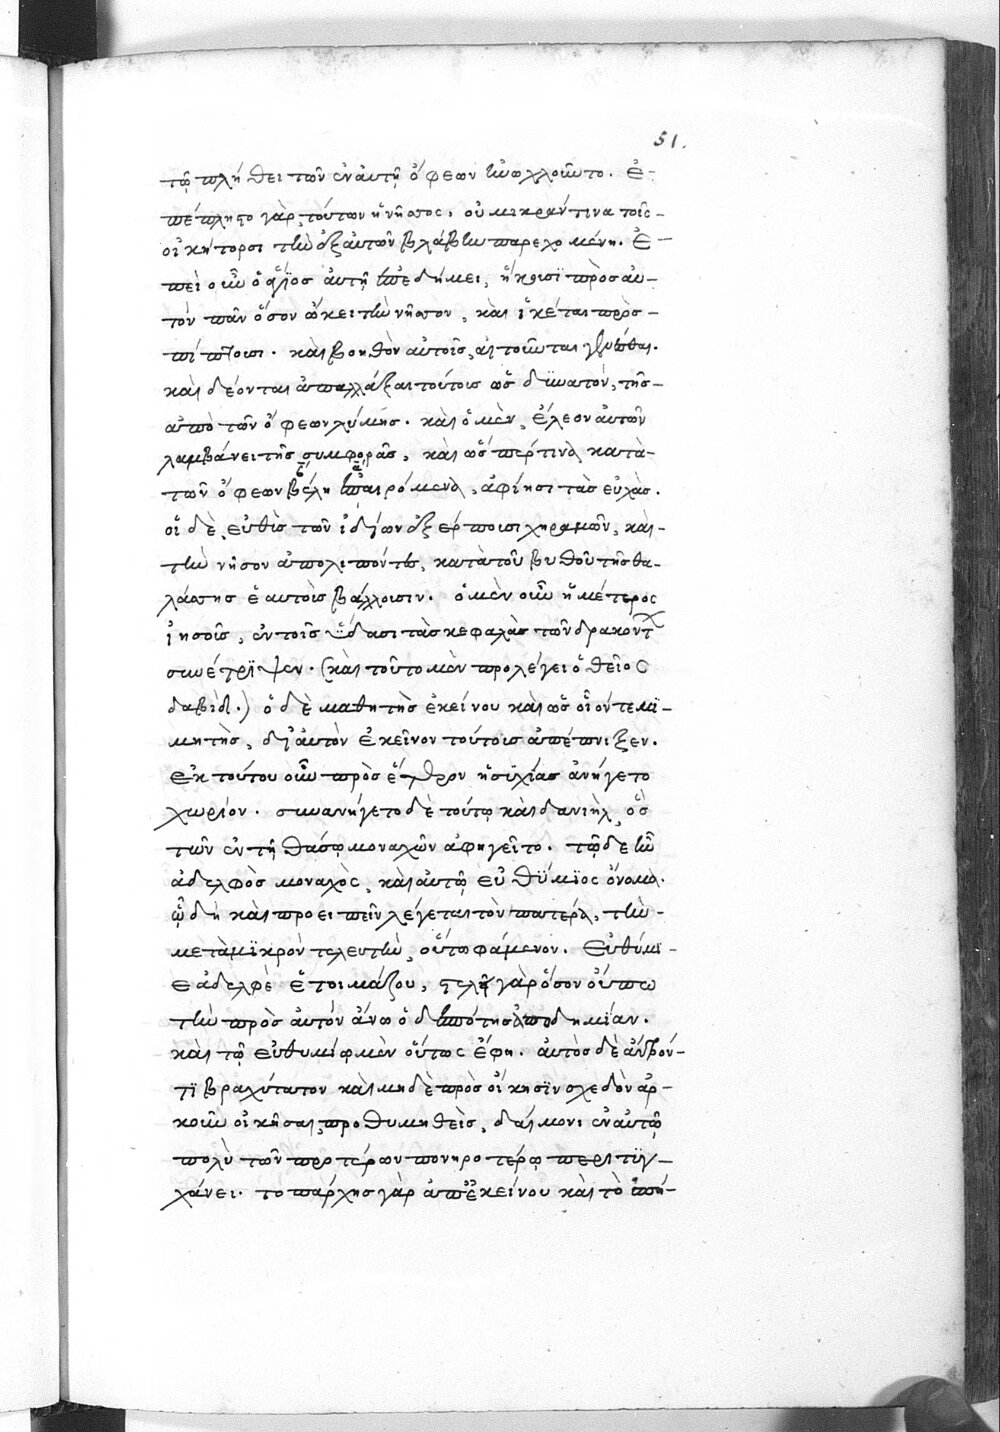 51.
τῷ πλήθει τῶν ἐν αὐτῇ ὄφεων ἠνωχλοῦντο. ἐ-
πέπληστο γὰρ τούτων ἡ νῆσος, οὐ μικράν τινα τοῖς
οἰκήτορσι τὴν ἐξ αὐτῶν βλάβην παρεχομένη. Ἐ-
πεὶ οὖν ὁ ἅγϊος αὐτῇ ἐπεδήμει, ἥκουσϊ πρὸς αὐ-
τὸν πᾶν ὅσον ᾤκει τὴν νῆσον, καὶ ἱκέται προσ-
πίπτουσι. καὶ βοηθὸν αὐτοῖς αἰτοῦνται γενέσθαι.
καὶ δέονται ἀπαλλάξαι τούτοις ὡς δϋνατόν, τῆς
ἀπὸ τῶν ὄφεων λύμης. καὶ ὁ μὲν, ἔλεον αὐτῶν
λαμβάνει τῆς συμφορᾶς, καὶ ὥσπέρ τινα κατὰ
τῶν ὄφεων βέλη ἐπαιρόμενα, ἀφίησι τὰς εὐχάς.
οἱ δὲ, εὐθὺς τῶν ἰδίων ἐξέρπουσι χηραμῶν, καὶ
τὴν νῆσον ἀπολιπόντες, κατὰ τοῦ βυθοῦ τῆς θα-
λάσσης ἑαυτοὺς βάλλουσιν. ὁ μὲν οὖν ἡμέτερος
ἰησοῦς, ἐν τοῖς ὕδασι τὰς κεφαλὰς τῶν δρακόντ
συνέτρϊψεν. (καὶ τοῦτο μὲν προλέγει ὁ θεῖος
δαβὶδ.) ὁ δὲ μαθητὴς ἐκείνου καὶ ὡς οἷόν τε μϊ-
μητὴς, δι' αὐτὸν ἐκεῖνον τούτους ἀπέπνιξεν.
Ἐκ τούτου οὖν πρὸς ἕτερον ἡσϋχίας ἀνήγετο
χωρίον. συνανήγετο δὲ τούτῳ καὶ δανιὴλ, ὃς
τῶν ἐν τῇ θάσῳ μοναχῶν ἀφηγεῖτο. τῷ δὲ ἦν
ἀδελφὸς μοναχὸς, καὶ αὐτῷ εὐθϋμϊος ὄνομα.
ᾧ δὴ καὶ προειπεῖν λέγεται τὸν πατέρα, τὴν
μετὰ μϊκρὸν τελευτὴν, οὕτω φάμενον. Εὐθύμϊ-
ε ἀδελφὲ ἑτοιμάζου, στελεῖ γὰρ ὅσον οὔπω
τὴν πρὸς αὐτὸν ἄνω ὁ δεσπότης ἀποδημίαν.
καὶ τῷ εὐθυμίῳ μὲν οὕτως ἔφη. αὐτὸς δὲ ἀνβόν-
τϊ βραχύτατον καὶ μηδὲ πρὸς οἴκησϊν σχεδὸν ἀρ-
κοῦν οἰκῆσαι προθυμηθεὶς, δαίμονι ἐν αὐτῷ
πολὺ τῶν προτέρων πονηροτέρῳ περιτϋγ-
χάνει. τοπάρχης γὰρ ἀπ' ἐκείνου καὶ τὸ